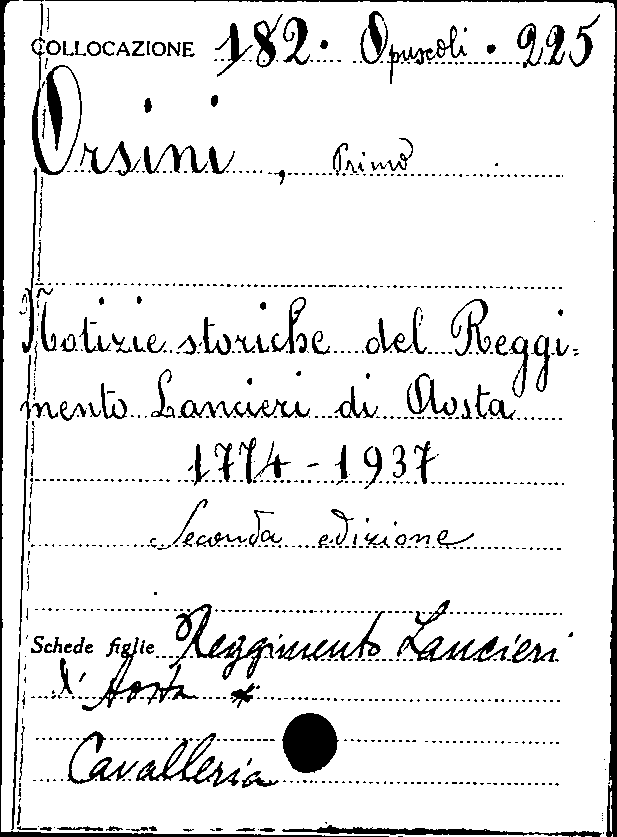 COLLOCAZIONE 182 · Opuscoli · 225
Orsini, Primo
Notizie storiche del Reggi-
mento Lancieri di Aosta
1774-1937
Seconda edizione
Schede figlie Reggimento Lancieri
d'Aosta *
Cavalleria